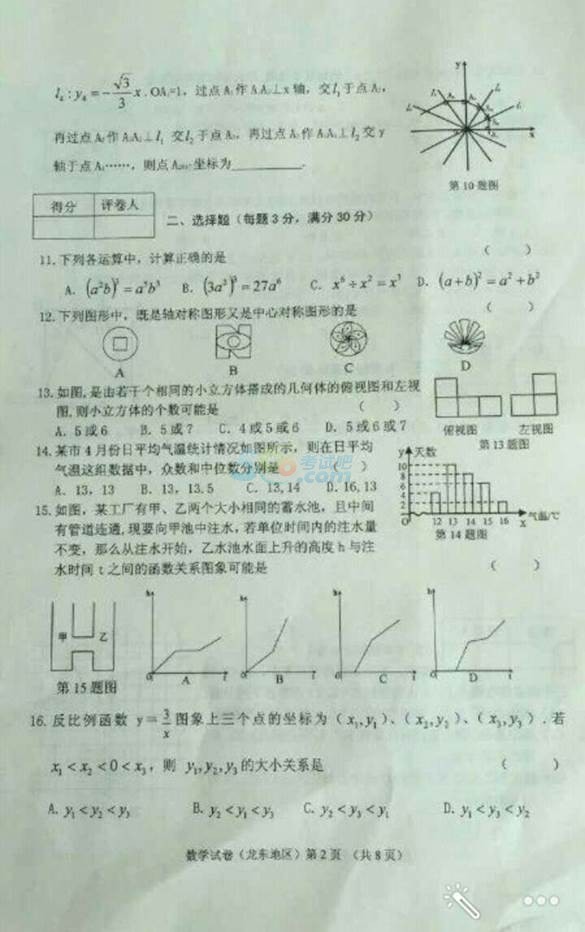 l₄:y₄=-√3/3 x.OA₁=1，过点A₁作A₁A₂⊥x轴，交l₁于点A₂，
再过点A₂作A₂A₃⊥l₁ 交l₂于点A₃，再过点A₃作A₃A₄⊥l₂交y
轴于点A₄……，则点 坐标为________.
y
x
第10题图
得分 评卷人
二、选择题（每题3分，满分30分）
11.下列各运算中，计算正确的是 （ ）
A. (a²b)³=a⁵b³ B. (3a²)³=27a⁶ C. x⁶÷x²=x³ D. (a+b)²=a²+b²
12.下列图形中，既是轴对称图形又是中心对称图形的是 （ ）
A B C D
13.如图,是由若干个相同的小立方体搭成的几何体的俯视图和左视
图,则小立方体的个数可能是 （ ）
A. 5或6 B. 5或7 C. 4或5或6 D. 5或6或7
俯视图 左视图
第13题图
14.某市4月份日平均气温统计情况如图所示，则在日平均
气温这组数据中，众数和中位数分别是 （ ）
A. 13, 13 B. 13, 13.5 C. 13,14 D. 16,13
考试吧
y 天数
10
8
6
4
2
O 12 13 14 15 16 x 气温/℃
第14题图
15.如图，某工厂有甲、乙两个大小相同的蓄水池，且中间
有管道连通,现要向甲池中注水,若单位时间内的注水量
不变，那么从注水开始，乙水池水面上升的高度h与注
水时间t之间的函数关系图象可能是 （ ）
甲 乙
第15题图
h
t
A
h
t
B
h
t
C
h
t
D
16.反比例函数 y=3/x 图象上三个点的坐标为（x₁,y₁）、（x₂,y₂）、（x₃,y₃）.若
x₁<x₂<0<x₃，则 y₁,y₂,y₃的大小关系是 （ ）
A. y₁<y₂<y₃ B. y₂<y₁<y₃ C. y₂<y₃<y₁ D. y₁<y₃<y₂
数学试卷（龙东地区）第2页 （共8页）